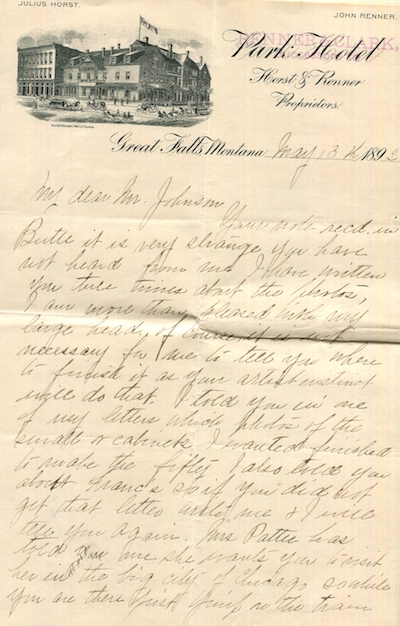 JULIUS HORST.
JOHN RENNER.
RENNER & CLARK,
Park Hotel
Horst & Renner
Proprietors.
Great Falls, Montana, May 13th 189
My dear Mr. Johnson
Your note recd. in
Butte it is very strange you have
not heard from me I have written
you three times about the photos,
I am more than pleased with my
large head, of course it is not
necessary for me to tell you where
to finish it as your artist instinct
will do that. I told you in one
of my letters which photos of the
small or cabinets I wanted finished
to make the fifty I also told you
about Francis so if you did not
get that letter write me & I will
tell you again. Mrs Pattee has
told me she wants you to visit
her in the big city of Chicago so while
you are there just jump on the train